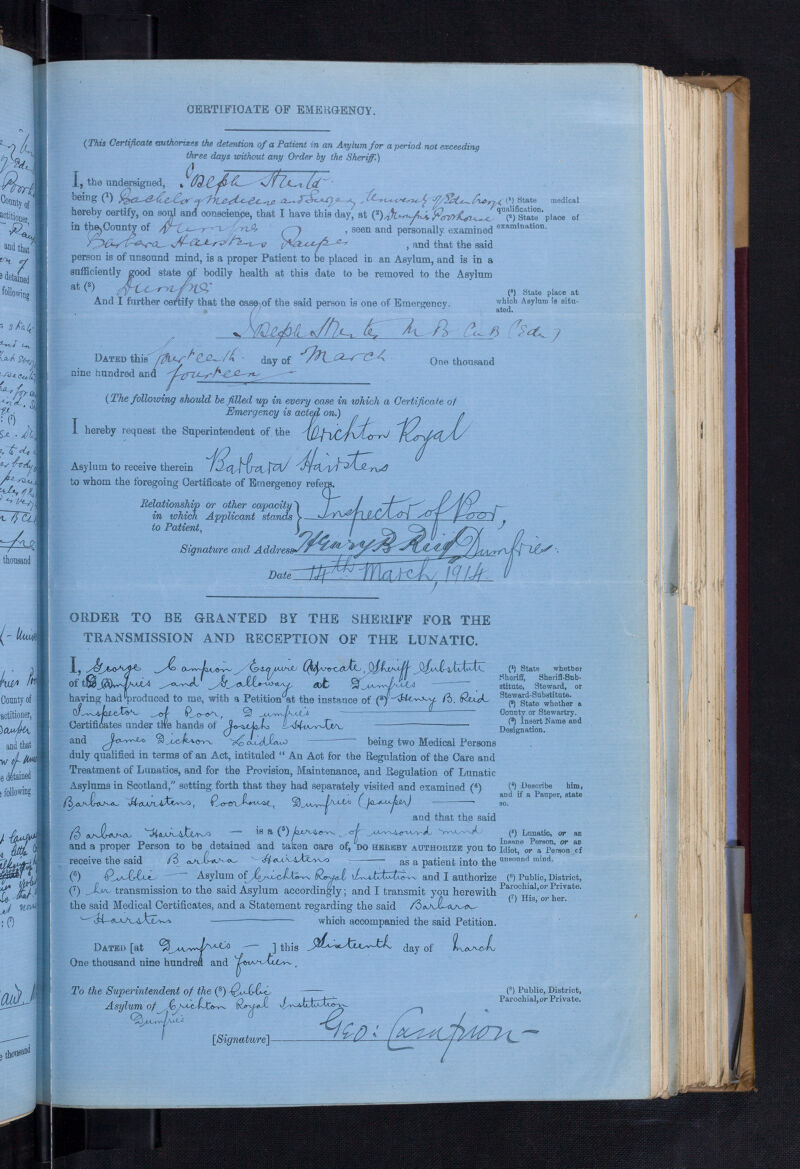 CERTIFICATE OF EMERGENCY.
(This Certificate authorizes the detention of a Patient in an Asylum for a period not exceeding
three days without any Order by the Sheriff.)
I, the undersigned, Joseph Hunter
being (¹) Bachelor of Medicine and Surgery University of Edinburgh
hereby certify, on soul and conscience, that I have this day, at (²) Dumfries Poorhouse
in the County of Dumfries, seen and personally examined
Barbara Hairstens Pauper, and that the said
person is of unsound mind, is a proper Patient to be placed in an Asylum, and is in a
sufficiently good state of bodily health at this date to be removed to the Asylum
at (³) Dumfries
And I further certify that the case of the said person is one of Emergency.
(¹) State medical
qualification.
(²) State place of
examination.
(³) State place at
which Asylum is situ-
ated.
Joseph Hunter M B Ch B (Edin)
DATED this fourteenth day of March One thousand
nine hundred and fourteen
(The following should be filled up in every case in which a Certificate of
Emergency is acted on.)
I hereby request the Superintendent of the Crichton Royal
Asylum to receive therein Barbara Hairstens
to whom the foregoing Certificate of Emergency refers.
Relationship or other capacity
in which Applicant stands
to Patient,
Inspector of Poor,
Signature and Address Henry B Reid Dumfries.
Date 14th March, 1914
ORDER TO BE GRANTED BY THE SHERIFF FOR THE
TRANSMISSION AND RECEPTION OF THE LUNATIC.
I, George Campion Esquire Advocate, Sheriff Substitute
of (²) Dumfries and Galloway at Dumfries
having had produced to me, with a Petition at the instance of (³) Henry B. Reid
Inspector of Poor, Dumfries
Certificates under the hands of Joseph Hunter
and James Dickson Laidlaw being two Medical Persons
duly qualified in terms of an Act, intituled "An Act for the Regulation of the Care and
Treatment of Lunatics, and for the Provision, Maintenance, and Regulation of Lunatic
Asylums in Scotland," setting forth that they had separately visited and examined (⁴)
Barbara Hairstens, Poorhouse, Dumfries (pauper)
and that the said
Barbara Hairstens is a (⁵) person of unsound mind
and a proper Person to be detained and taken care of, DO HEREBY AUTHORIZE YOU to
receive the said Barbara Hairstens as a patient into the
(⁶) Public Asylum of Crichton Royal Institution and I authorize
(⁷) her transmission to the said Asylum accordingly; and I transmit you herewith
the said Medical Certificates, and a Statement regarding the said Barbara
Hairstens which accompanied the said Petition.
(¹) State whether
Sheriff, Sheriff-Sub-
stitute, Steward, or
Steward-Substitute.
(²) State whether a
County or Stewartry.
(³) Insert Name and
Designation.
(⁴) Describe him,
and if a Pauper, state
so.
(⁵) Lunatic, or an
Insane Person, or an
Idiot, or a Person of
unsound mind.
(⁶) Public, District,
Parochial, or Private.
(⁷) His, or her.
DATED [at Dumfries] this Sixteenth day of March
One thousand nine hundred and fourteen.
To the Superintendent of the (⁸) Public
Asylum of Crichton Royal Institution
Dumfries
(⁸) Public, District,
Parochial, or Private.
[Signature] Geo: Campion